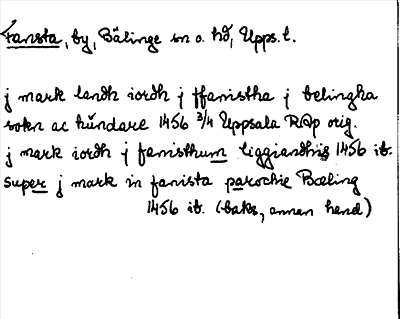 Fansta, by, Bälinge sn o. hd, Upps. l.
j mark landh iordh j ffanistha j belingha
sokn ac hundare 1456 3/4 Uppsala RAp orig.
j mark iordh j fanisthum liggiandhis 1456 ib.
super j mark in fanista parochie Bæling
1456 ib. (baks., annan hand)